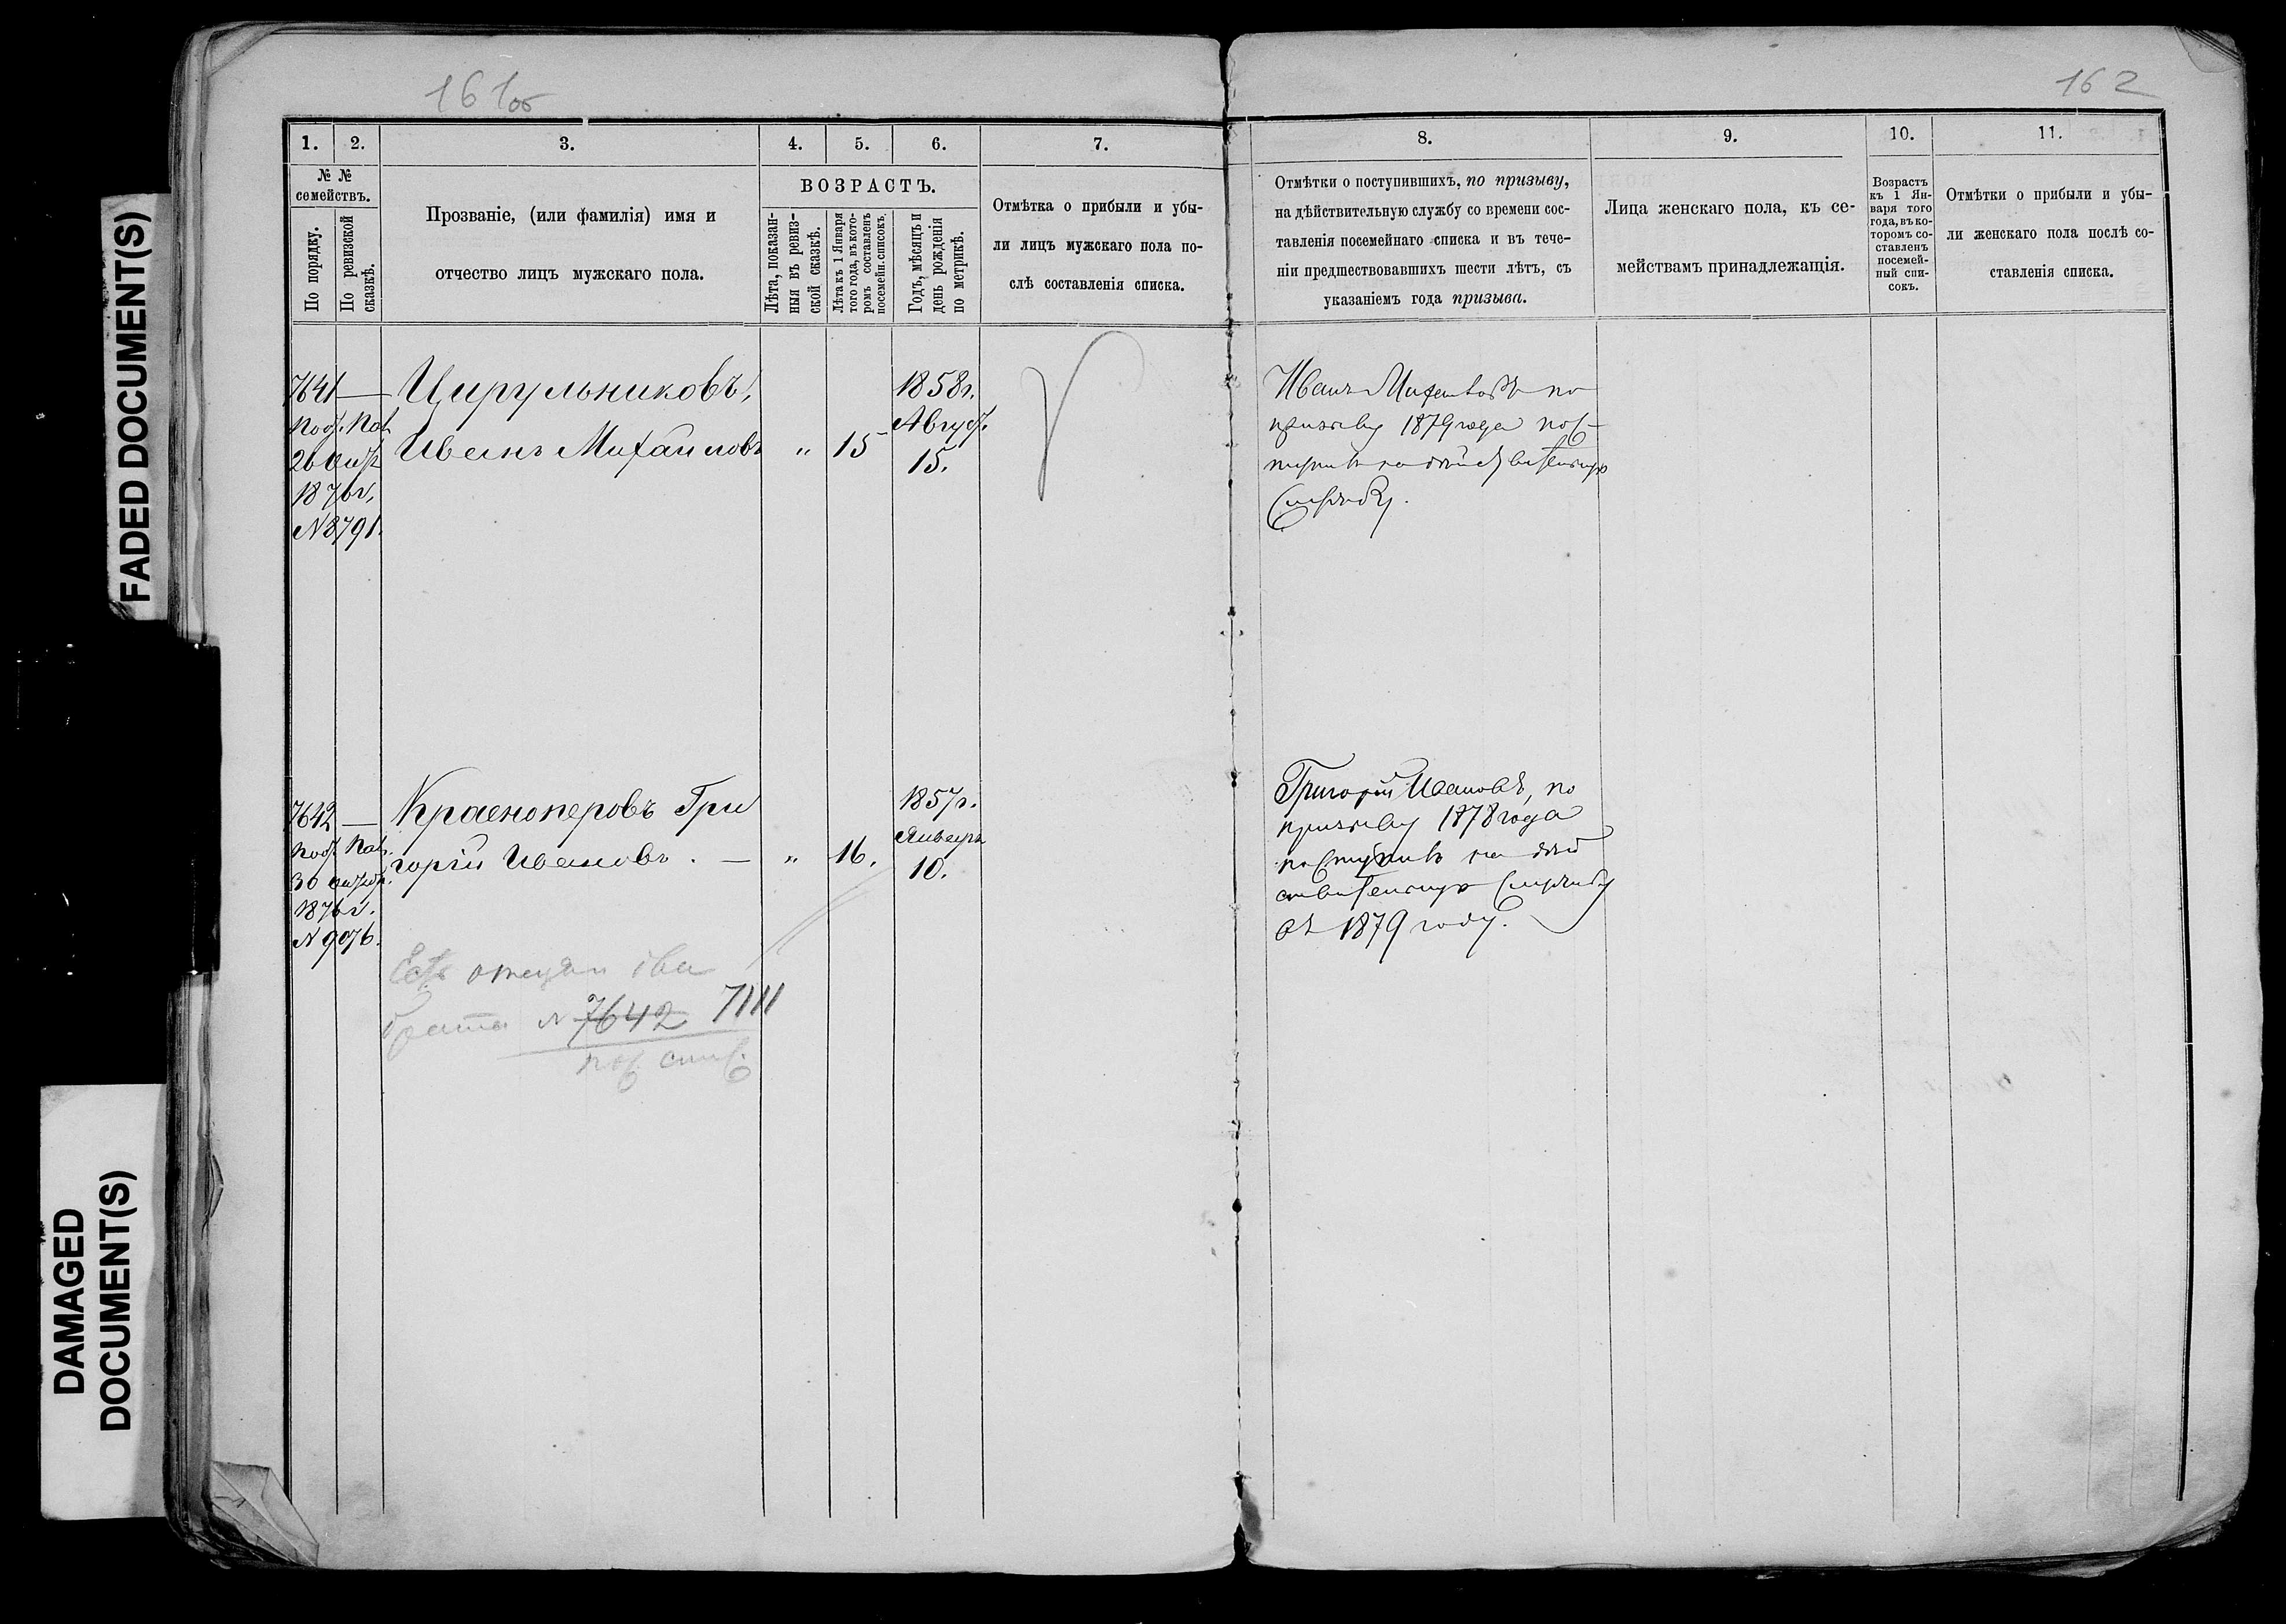 161об
162
FADED DOCUMENT(S)
DAMAGED
DOCUMENT(S)
1.
2.
3.
4.
5.
6.
7.
№ №
семействъ.
По порядку.
По ревизской
сказкѣ.
Прозваніе, (или фамилія) имя и
отчество лицъ мужскаго пола.
ВОЗРАСТЪ.
Лѣта, показан-
ныя въ ревиз-
ской сказкѣ.
Лѣта къ 1 Января
того года, въ кото-
ромъ составленъ
посемейн. списокъ.
Годъ, мѣсяцъ и
день рожденія
по метрикѣ.
Отмѣтка о прибыли и убы-
ли лицъ мужскаго пола по-
слѣ составленія списка.
7641 —
26
1876г,
N 8791.
Цирульниковъ,
Иванъ Михайловъ
„
15
1858г.
Август.
15.
7642 —
30
1876г.
N 9076.
Красноперовъ Гри
горій Ивановъ. —
„
16.
1857г.
Январь
10.
Есть два
брата N 7642 7111
8.
9.
10.
11.
Отмѣтки о поступившихъ, по призыву,
на дѣйствительную службу со времени сос-
тавленія посемейнаго списка и въ тече-
ніи предшествовавшихъ шести лѣтъ, съ
указаніемъ года призыва.
Лица женскаго пола, къ се-
мействамъ принадлежащія.
Возрастъ
къ 1 Ян-
варя того
года, въ ко-
торомъ со-
ставленъ
посемей-
ный спи-
сокъ.
Отмѣтки о прибыли и убы-
ли женскаго пола послѣ со-
ставленія списка.
Иванъ Михайловъ по
призыву 1879 года пос-
тупилъ на действительную
службу.
Григорій Ивановъ, по
призыву 1878 года
поступилъ на дѣй
ствительную службу
въ 1879 году.